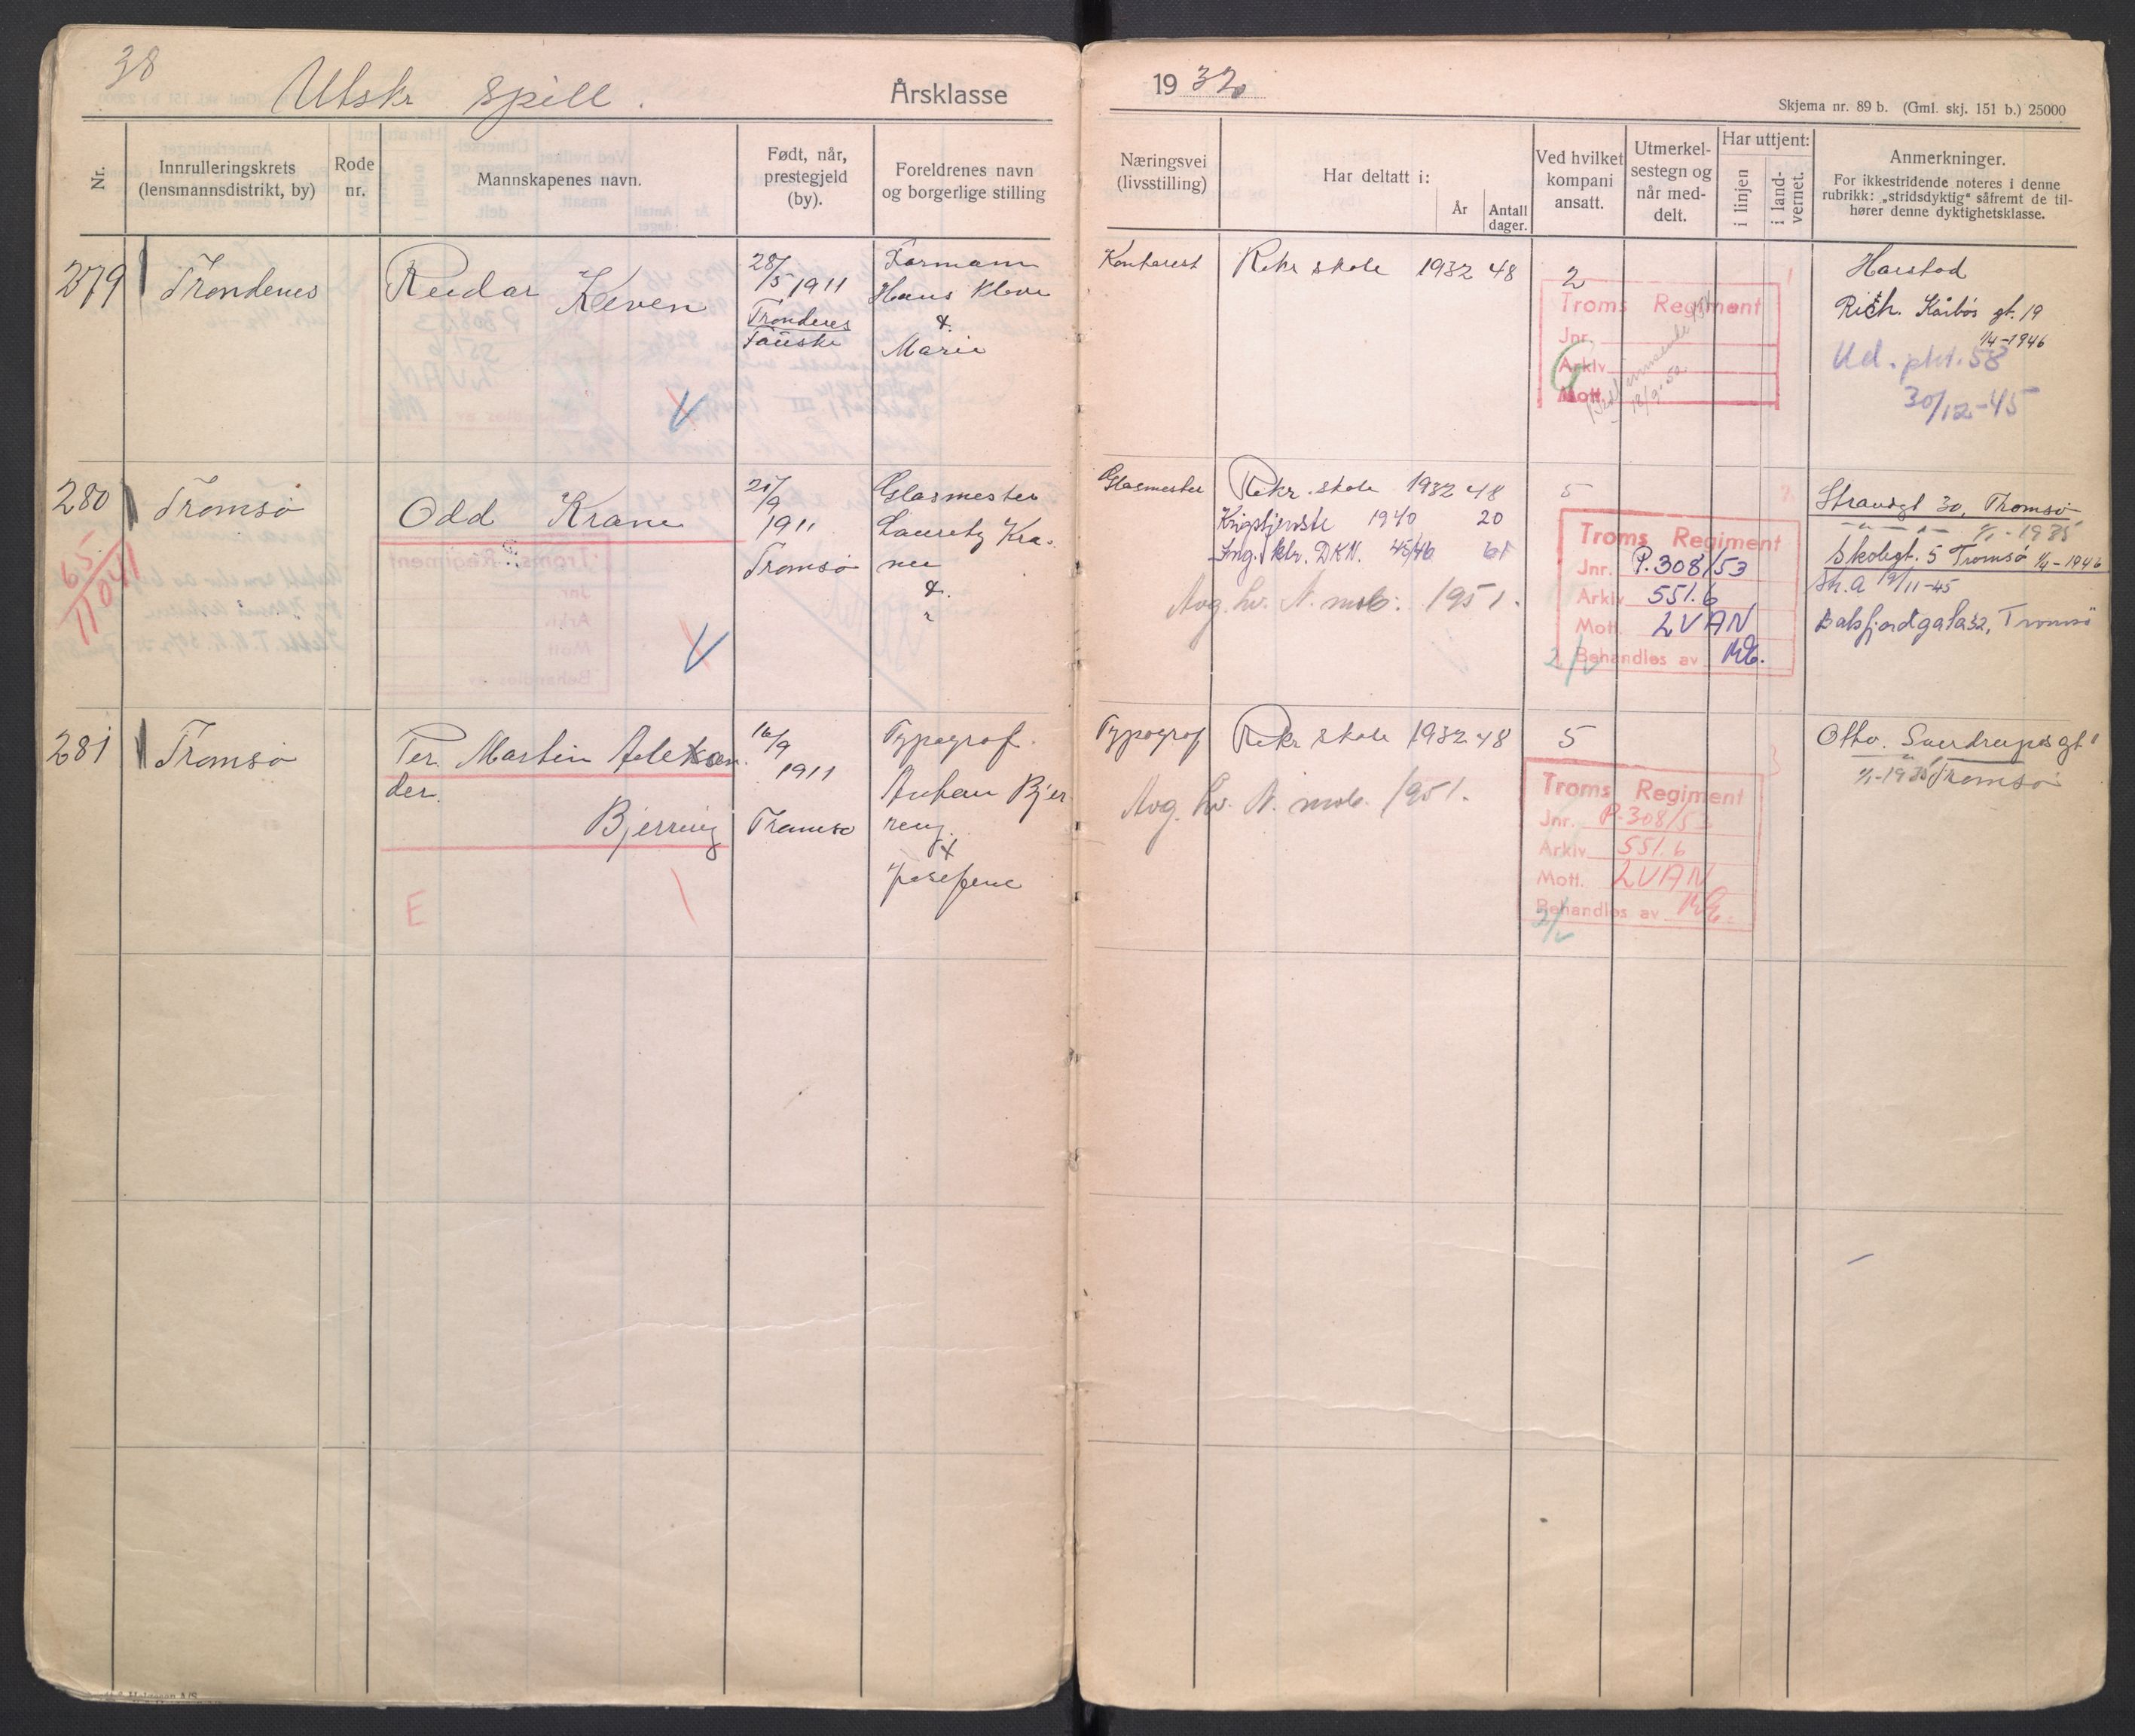 38
Utskr spill.
Årsklasse
1932
Skjema nr. 89 b. (Gml. skj. 151 b.) 25000
Nr.
Innrulleringskrets
(lensmannsdistrikt, by)
Rode
nr.
Mannskapenes navn.
Født, når,
prestegjeld
(by).
Foreldrenes navn
og borgerlige stilling
Næringsvei
(livsstilling)
Har deltatt i:
År
Antall
dager.
Ved hvilket
kompani
ansatt.
Utmerkel-
sestegn og
når med-
delt.
Har uttjent:
i linjen
i land-
vernet.
Anmerkninger.
For ikkestridende noteres i denne
rubrikk: „stridsdyktig“ såfremt de til-
hører denne dyktighetsklasse.
279
Trondenes
Reidar Kleven
28/5 1911
Trondenes
Fauske
Formann
Hans Kleven
&
Marie
Kontorist
Rekr skole 1932 48
2
Troms Regiment
Jnr.
Arkiv
Mott.
18/9-52
Harstad
Rich. Kårbøs gt. 19
1/4-1946
Ud. pkt. 58
30/12-45
280
65
11041
Tromsø
Odd Krane
21/9
1911
Tromsø
Glasmester
Lauritz Kra-
ne
&
Glasmester
Rekr. skole 1932 48
Krigstjeneste 1940 20
Ing. klv. DKN. 45/46 61
Avg. hv. N. mob. 1951.
5
Troms Regiment
Jnr. P.308/53
Arkiv 551.6
Mott. LVAN
Behandles av
Strandgt 30, Tromsø
1/1-1935
Skolegt. 5 Tromsø 1/4-1946
Sk.a 19/11-45
Balsfjordgata 32, Tromsø
281
Tromsø
Per. Martin Aleksan-
der.
Bjerring
16/9
1911
Tromsø
Typograf.
Anton Bjer-
ring.
&
Josefine
Typograf
Rekr skole 1932 48
Avg. hv. N. mob. 1951.
5
Troms Regiment
Jnr. P-308/53
Arkiv 551.6
Mott. LVAN
Behandles av
Otto. Sverdrups gt 1
1/1-1935 Tromsø
E